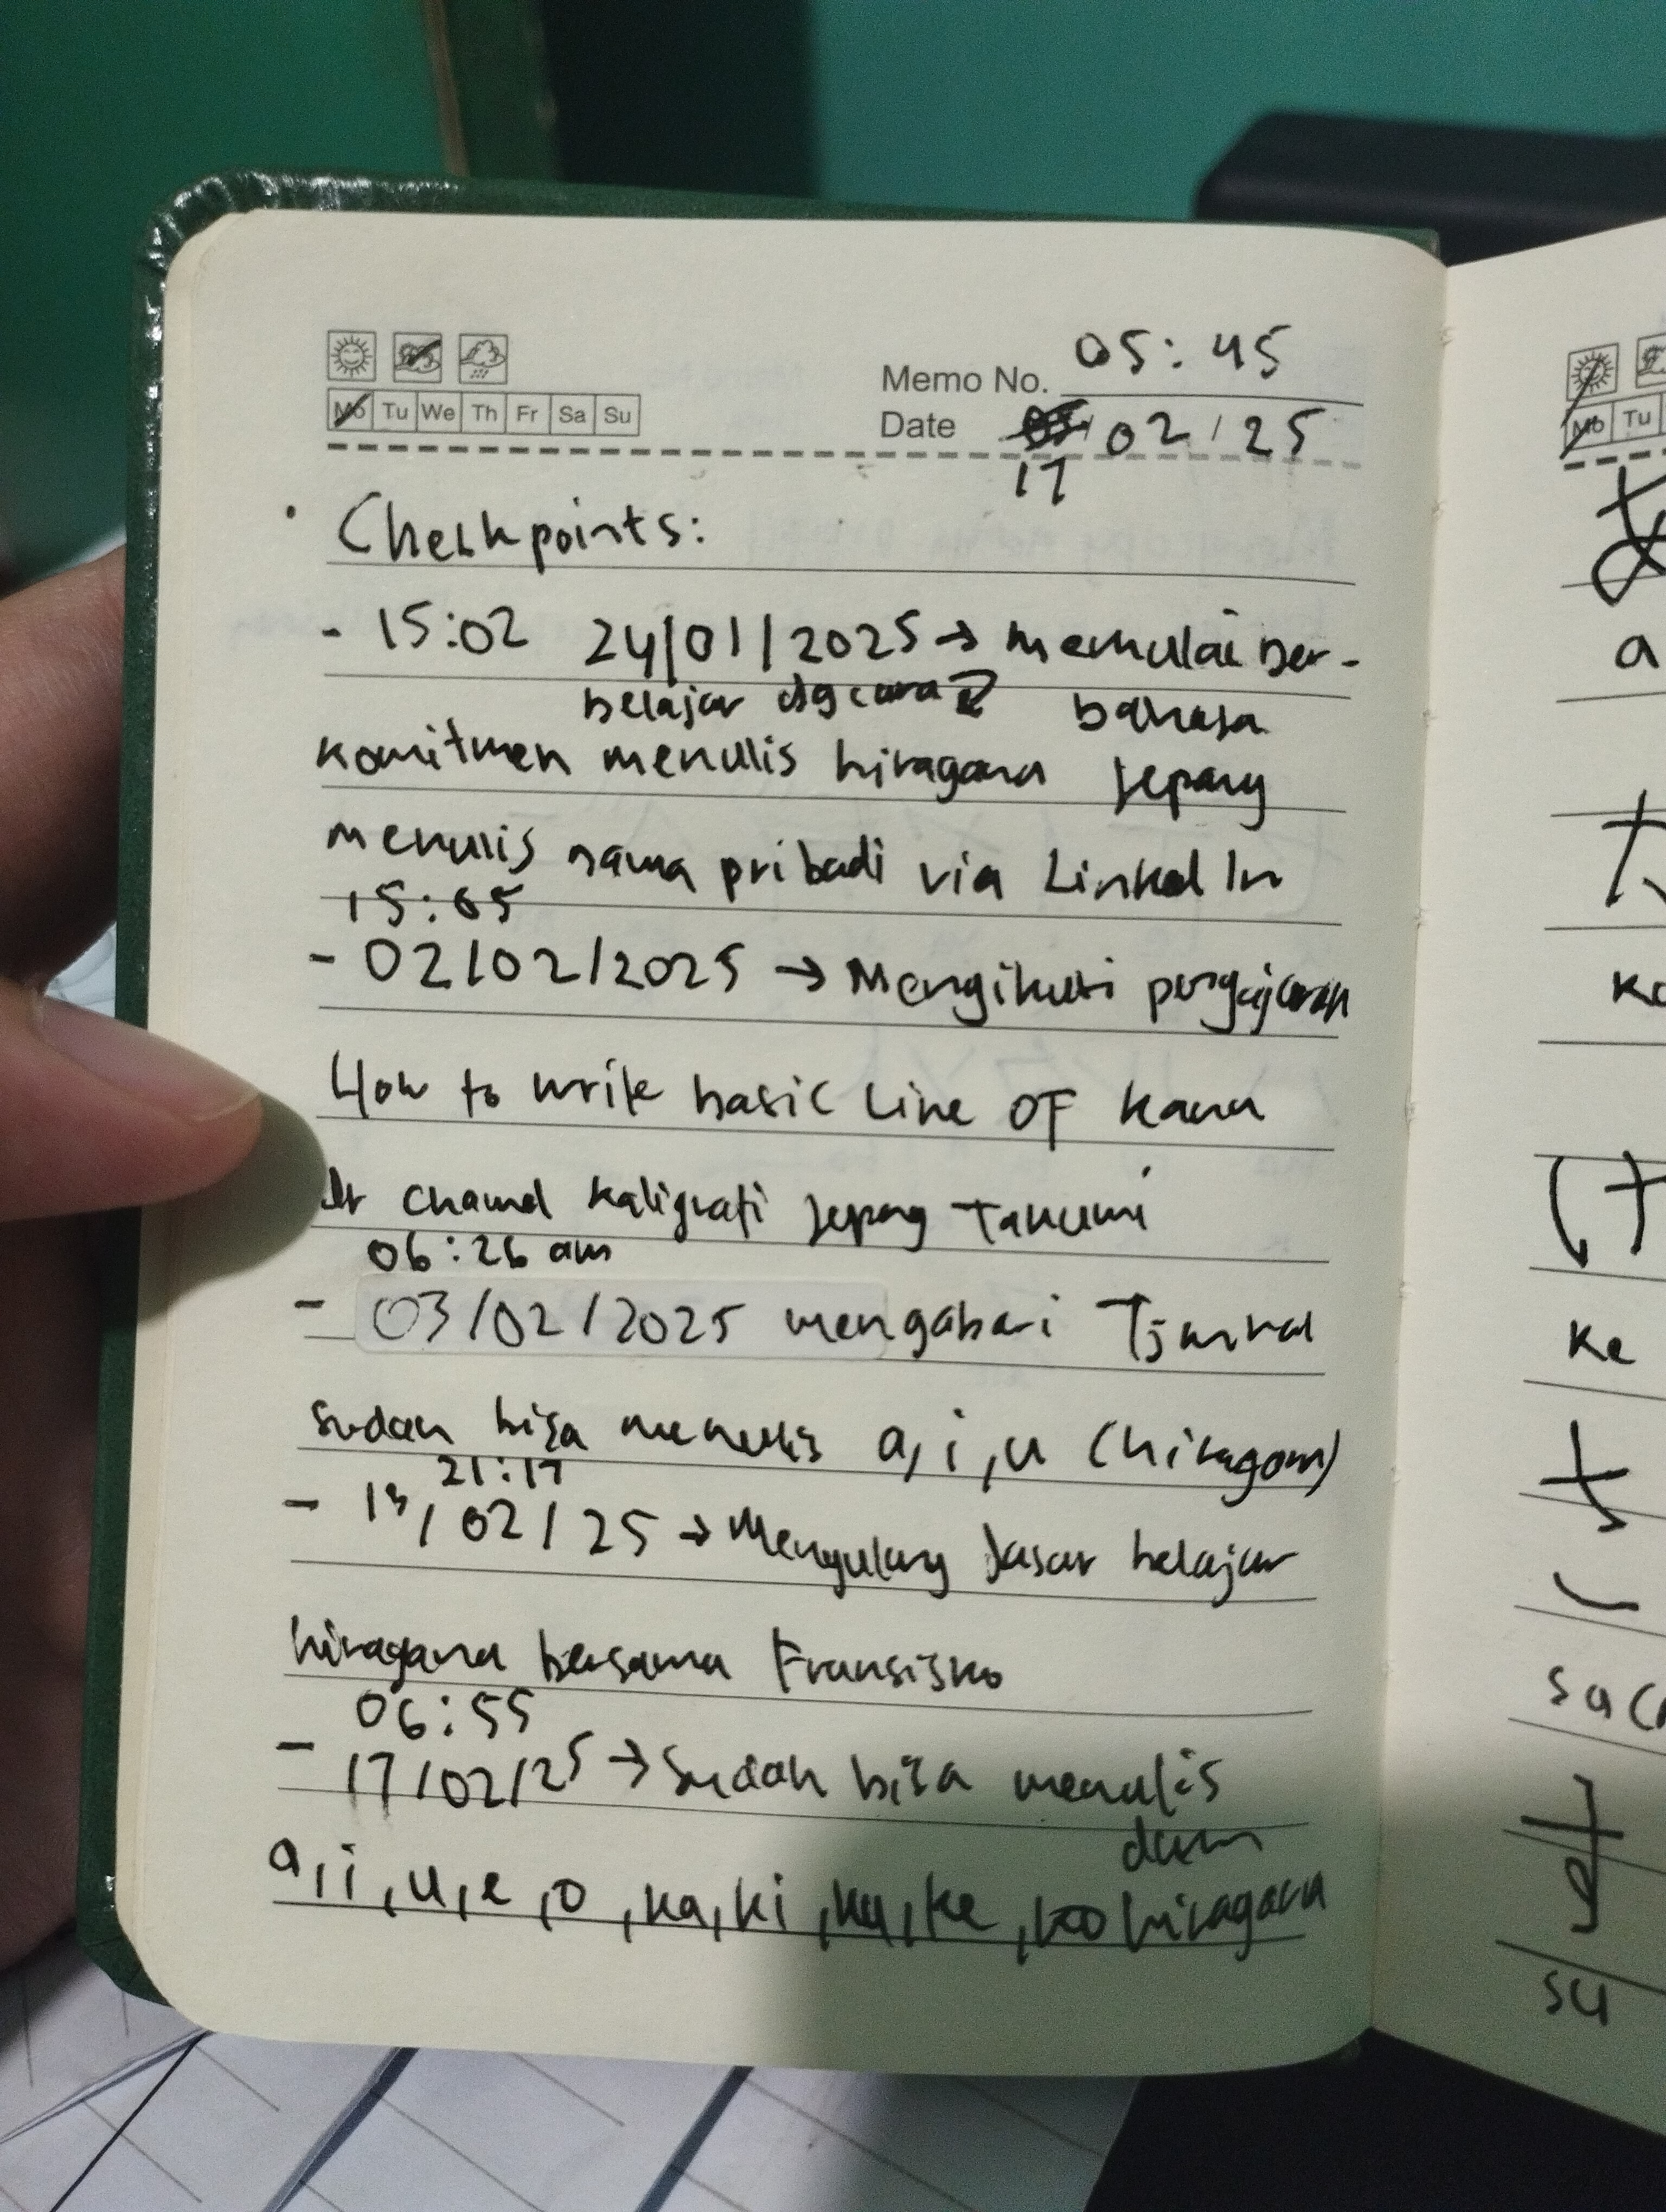 Memo No. 05:45
Mo Tu We Th Fr Sa Su
Date 02/25
17
Checkpoints:
- 15:02 24/01/2025 → memulai ber-
belajar dg cara bahasa
komitmen menulis hiragana Jepang
menulis nama pribadi via LinkedIn
15:05
- 02/02/2025 → Mengikuti pengajaran
How to write basic Line OF kana
channel kaligrafi Jepang Takumi
06:26 am
- 03/02/2025 mengabari
sudah bisa menulis a, i, u (hiragana)
21:17
- 13/02/25 → Mengulang dasar belajar
hiragana bersama Fransisko
06:55
- 17/02/25 → Sudah bisa menulis
dlm
a, i, u, e, o, ka, ki, ku, ke, ko hiragana
Mo Tu
a
ke
sa
su